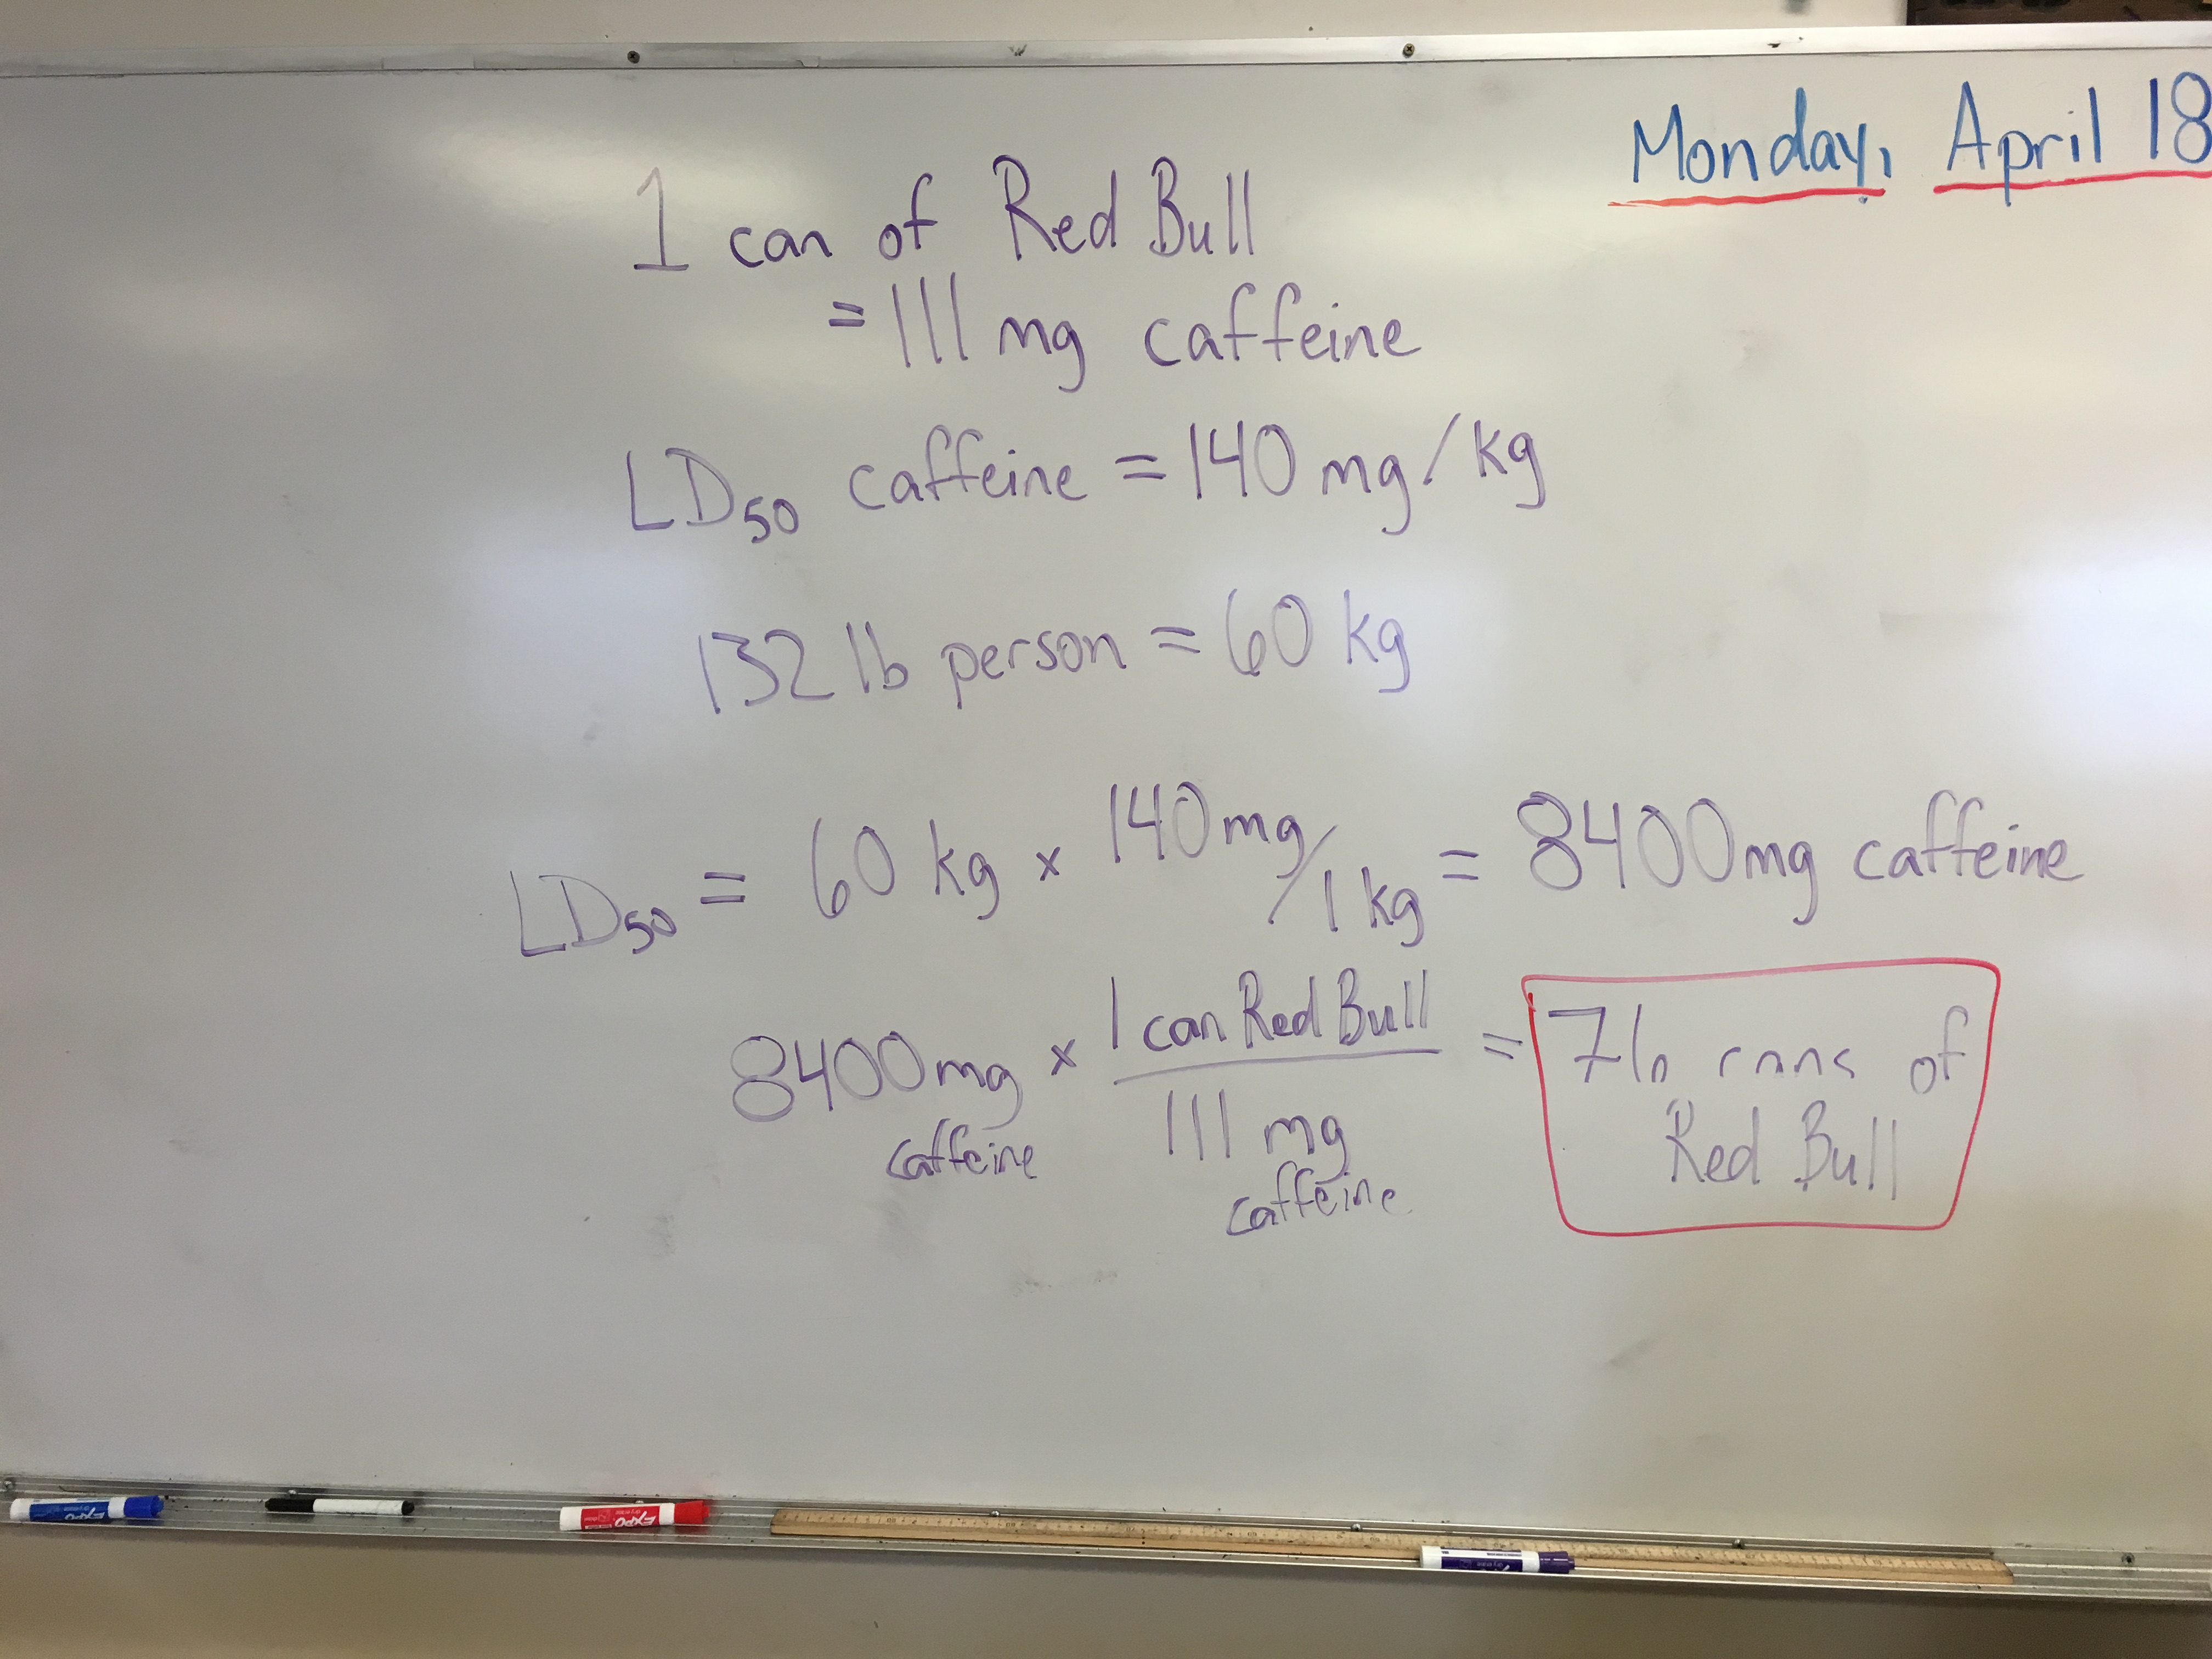 Monday, April 18
1 can of Red Bull
= 111 mg caffeine
LD50 caffeine = 140 mg/kg
132 lb person = 60 kg
LD50 = 60 kg x 140 mg/1 kg = 8400 mg caffeine
8400 mg caffeine x 1 can Red Bull / 111 mg caffeine = 76 cans of
Red Bull
EXPO
EXPO